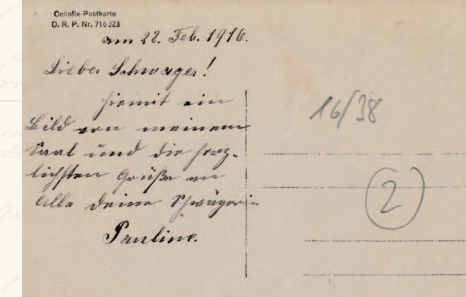 Cellofix-Postkarte
D. R. P. Nr. 716323
am 28. Feb. 1916.
Lieber Schwager!
hiemit ein
Bild von meinem
Saal und die herz-
lichsten Grüße an
Alle Deine Schwägerin
Pauline.
16/38
2